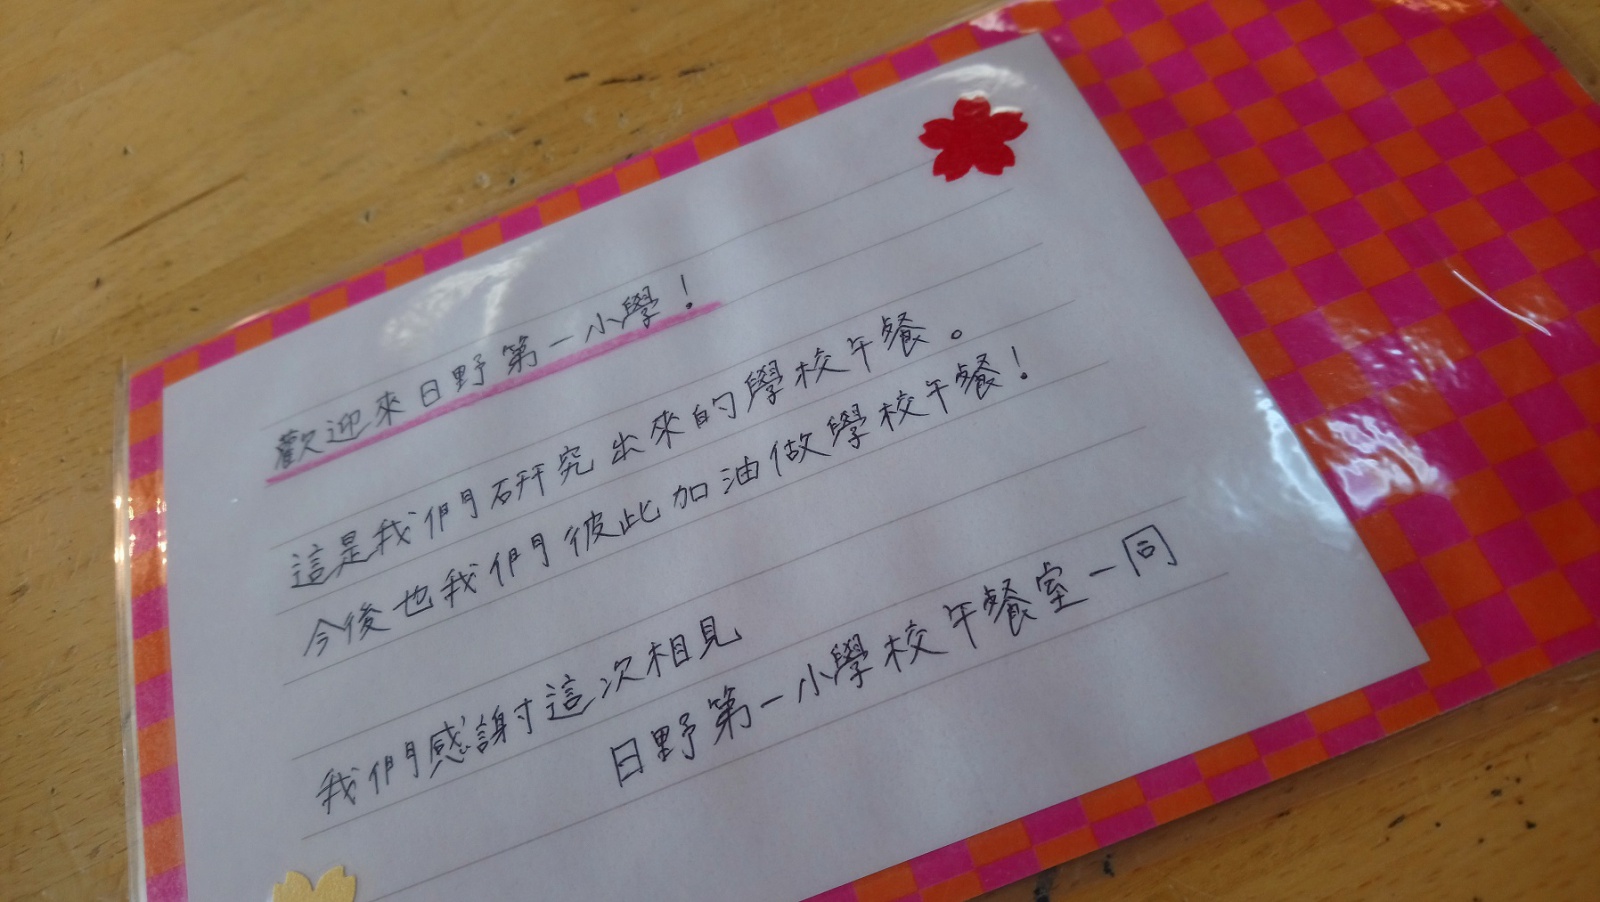 歡迎來日野第一小學！
這是我們研究出來的學校午餐。
今後也我們彼此加油做學校午餐！
我們感謝這次相見
日野第一小學校午餐室一同